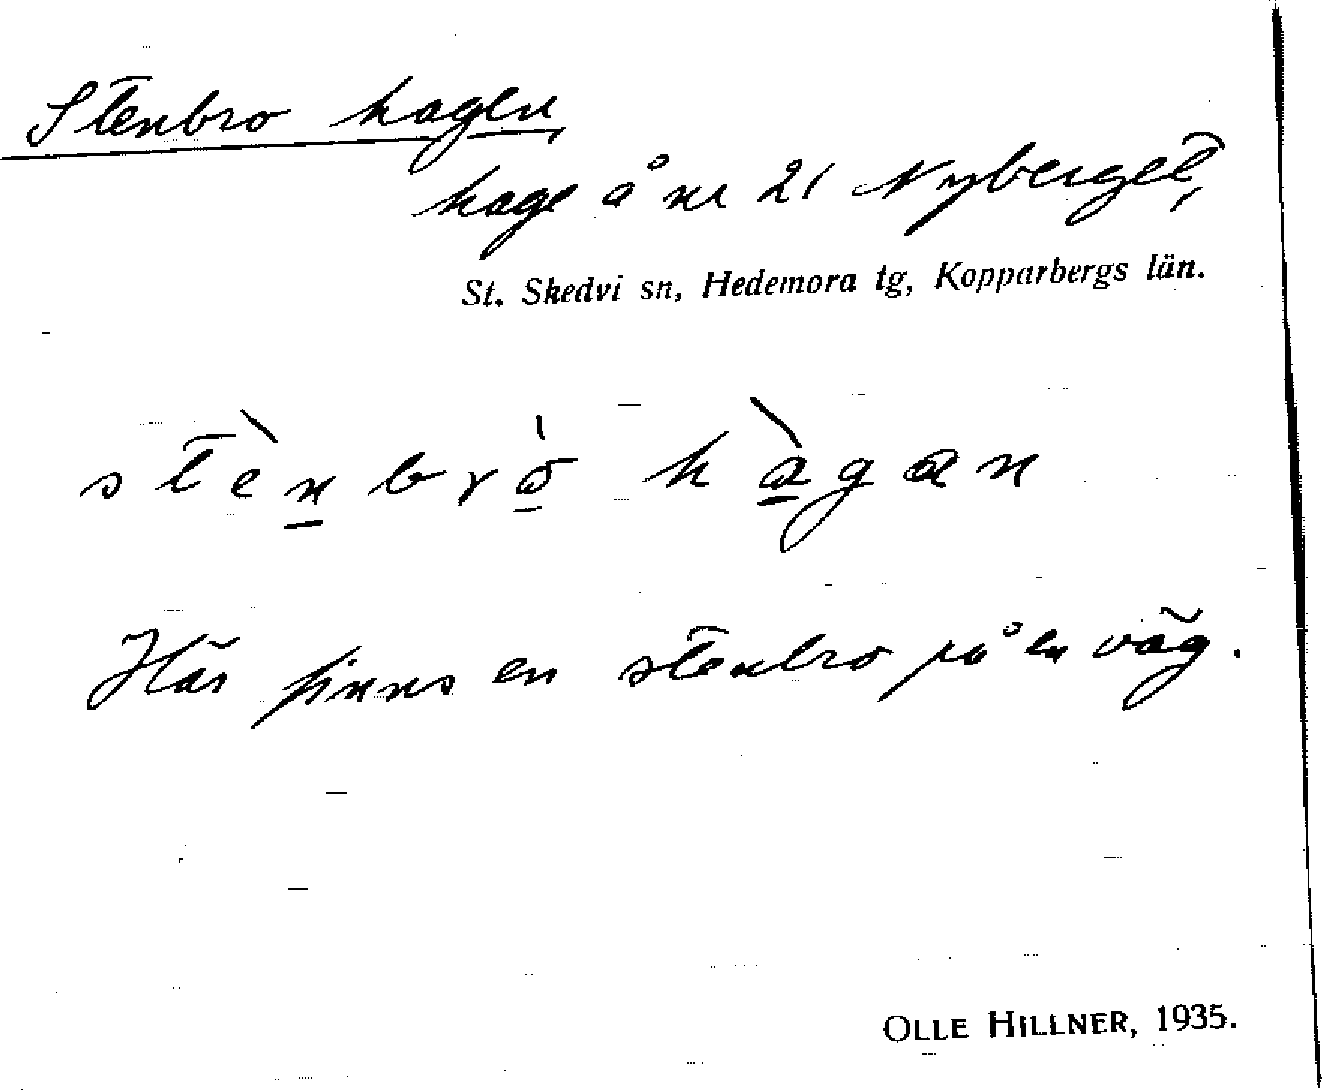 Stenbro hagen,
hage å nr 21 Nyberget,
St. Skedvi sn, Hedemora tg, Kopparbergs län.
stènbrò hàgan
Här finns en stenbro på en väg.
OLLE HILLNER, 1935.